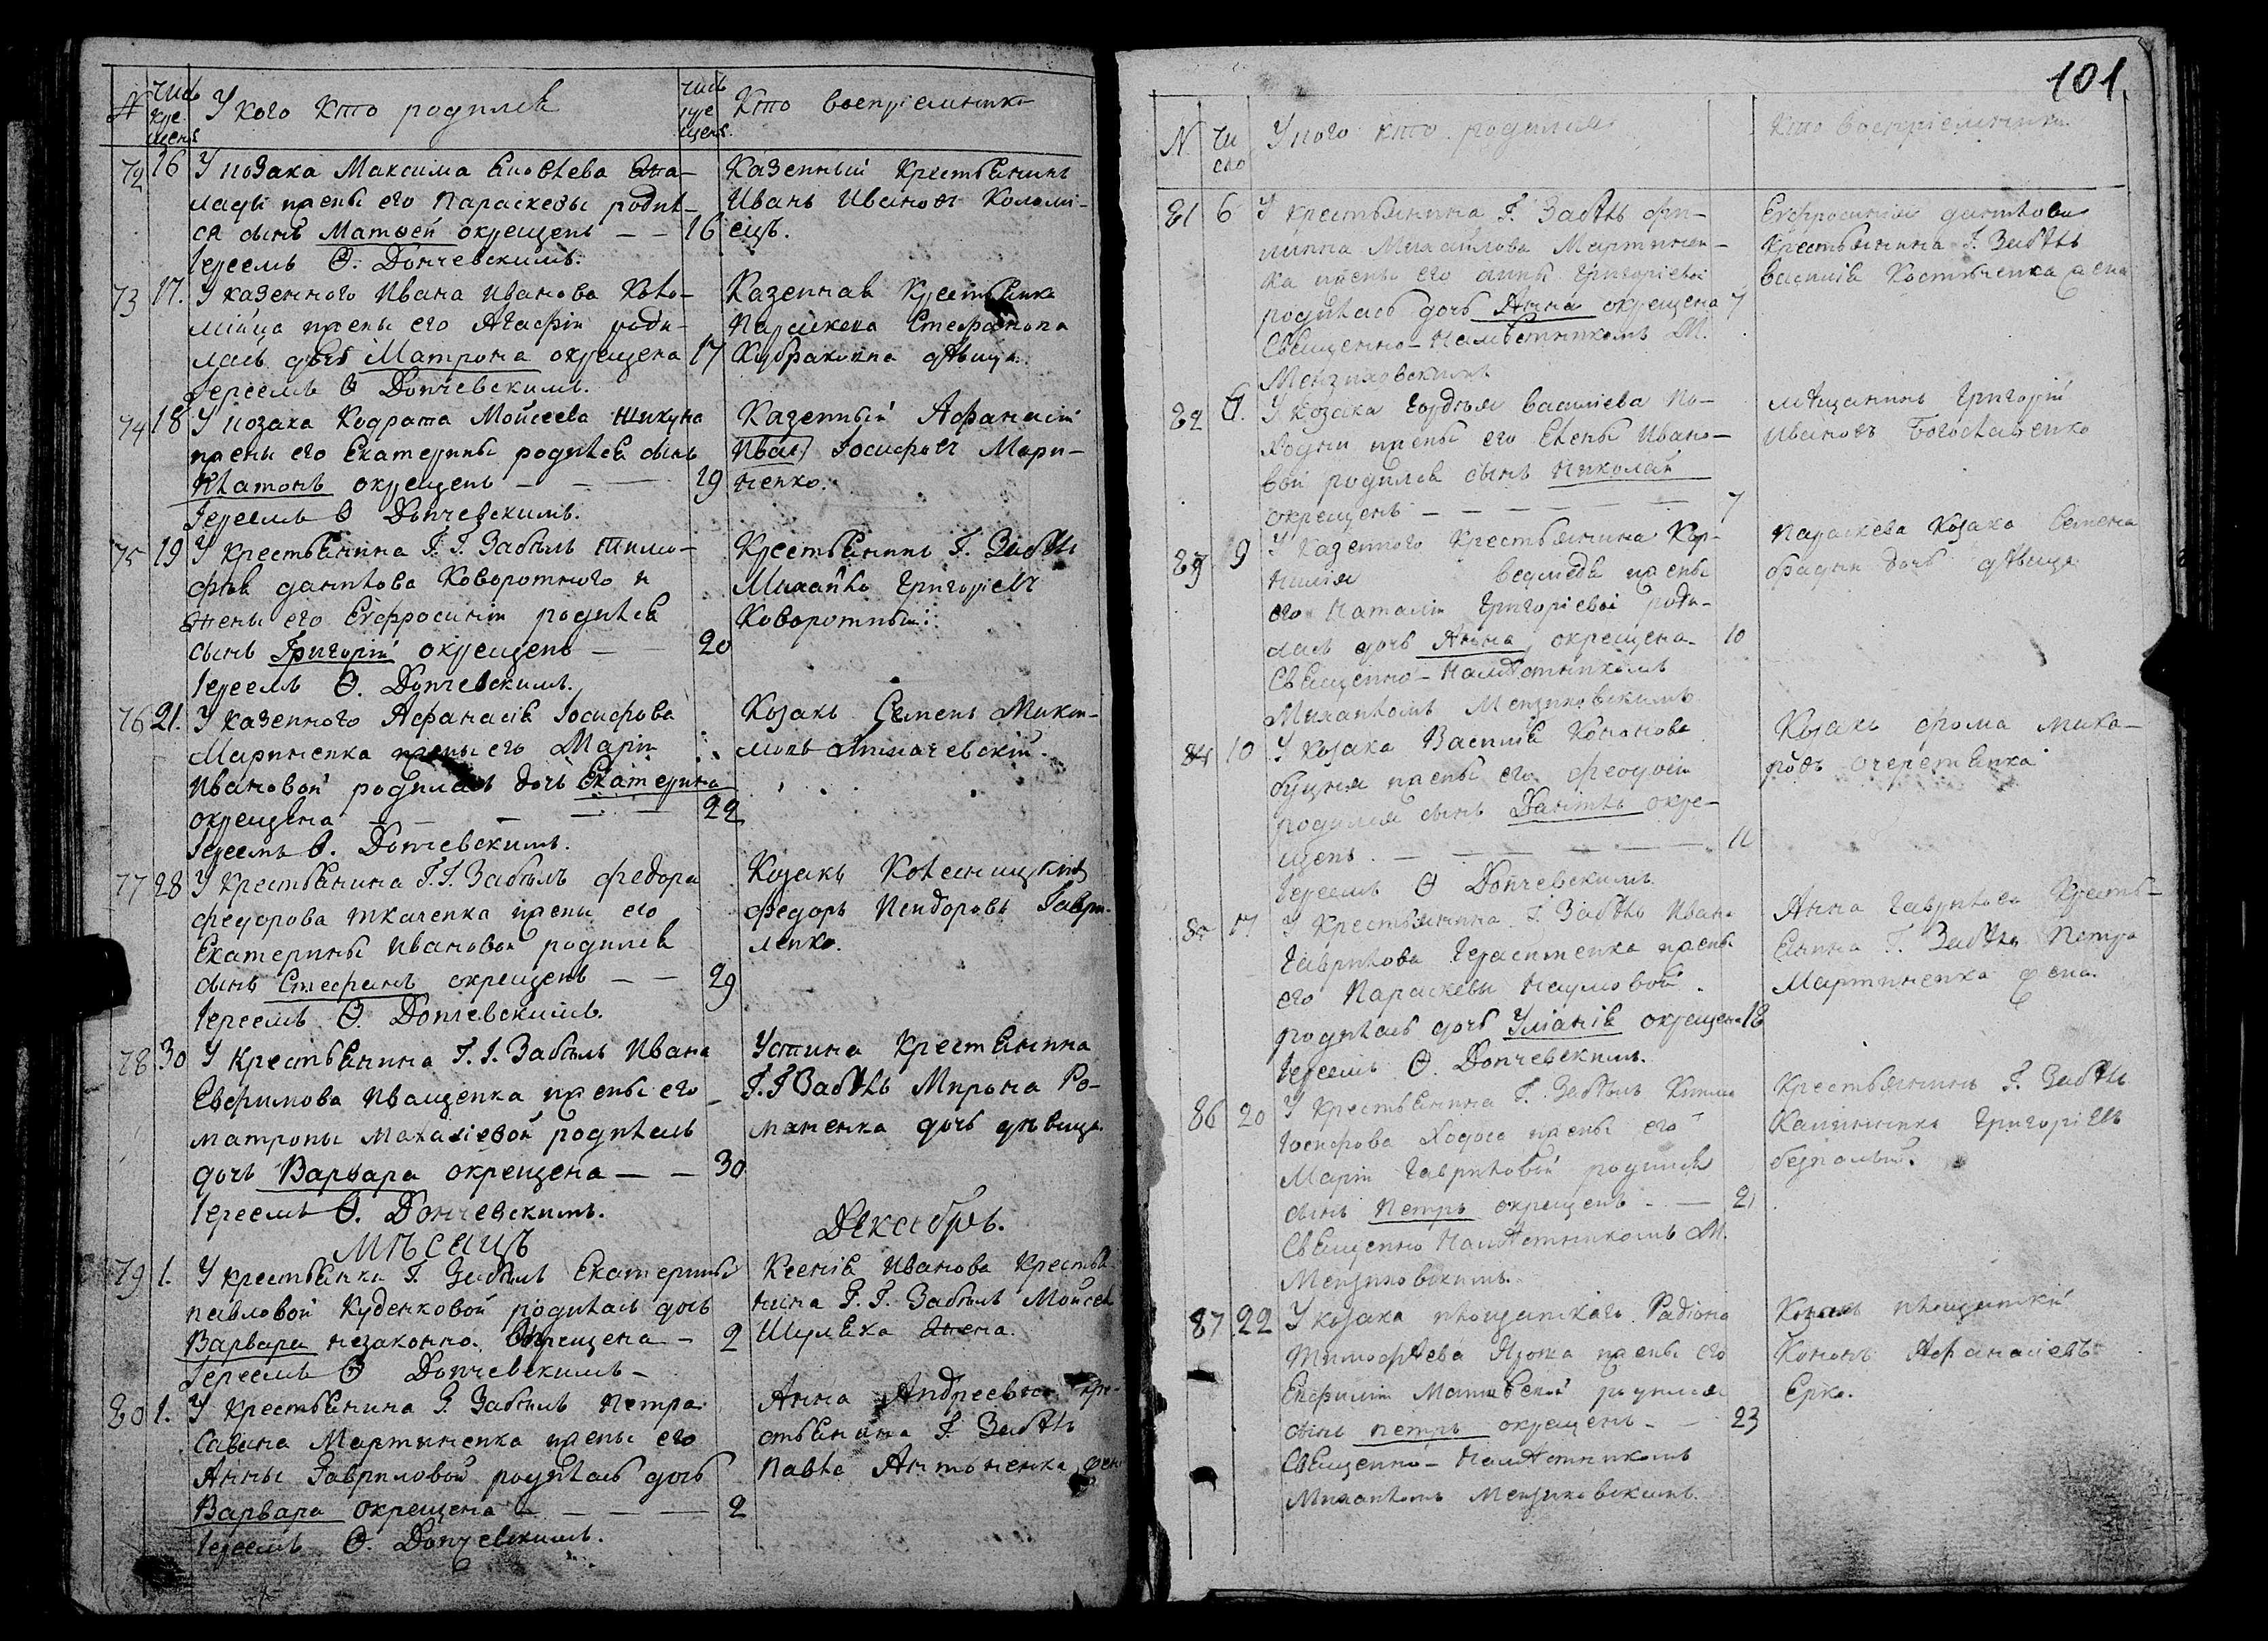 N Число креще. У кого кто родился число крещен. Кто воспріемникъ
72 16 У козака Максима Еліс
лади жены его Параскевы родил-
ся сынъ Матвей окрещенъ — — 16
Іереемъ Ѳ. Дончевскимъ.
Казенный крестьянинъ
Иванъ Ивановъ Коломі-
ецъ.
73 17. У казенного Ивана Иванова Коло-
мійца жены его Агафіи роди-
лась дочь Матрона окрещена 17
Іереемъ Ѳ Дончевскимъ.
Казенная крестьянка
Параскева Стефанова
дѣвица.
74 18 У козака Кодрата Мойсеева Шикуна
жены его Екатерины родился сынъ
Платонъ окрещенъ — — — 19
Іереемъ Ѳ Дончевскимъ.
Казенный Афанасій
Иван Іосифовъ Мари-
ненко.
75 19 У крестьянина Г. Г. Забѣлъ Тимо-
фея данилова Коворотного и
жены его Евфросиніи родился
сынъ Григорій окрещенъ — 20
Іереемъ Ѳ. Дончевскимъ.
Крестьянинъ Г. Забѣлъ
Михайло Григоріевъ
Коворотный.
76 21. У казенного Афанасія Іосифова
Мариненка жены его Маріи
Ивановой родилась дочь Екатерина
окрещена — — — — — 22
Іереемъ Ѳ. Дончевскимъ.
Козакъ Семенъ
77 28 У крестьянина Г. Г. Забѣлъ федора
федорова ткаченка жены его
Екатерины Ивановой родился
сынъ Стефанъ окрещенъ — — 29
Іереемъ Ѳ. Дончевскимъ.
Козакъ
федоръ Гаври-
ленко.
78 30 У крестьянина Г. Г. Забѣлъ Ивана
Евфимова Иващенка жены его
матроны родилась
дочь Варвара окрещена — — 30
Іереемъ Ѳ. Дончевскимъ.
Устина крестьянина
Г. Г Забѣлъ Мирона Ро-
маненка дочь дѣвица
мѣсяцъ Декабрь.
79 1. У крестьянки Г. Забѣлъ Екатерины
павловой Куденковой родилась дочь
Варвара незаконно. Окрещена — 2
Іереемъ Ѳ Дончевскимъ —
Ксенія Иванова крестья-
нина Г. Г. Забѣлъ Мойсея
Шуляка жена.
80 1. У крестьянина Г. Забѣлъ петра
Савина Мартиненка жены его
Анны Гавриловой родилась дочь
Варвара окрещена — — — — 2
Іереемъ Ѳ. Дончевскимъ.
Анна Андреева кре-
стьянина Г. Забѣлъ
павла жена
101.
N Число У кого кто родился Кто воспріемники
81 6 У крестьянина Г. Забѣлъ фи-
липпа Михайлова Мартинен-
ка жены его анны Григоріевой
родилась дочь Анна окрещена 7
Священно-Намѣстникомъ М.
Мензиховскимъ
Евфросинія данилова
крестьянина Г. Забѣлъ
василія Костюченка жена
82 6. У козака василіева По-
ходни жены его Елены Ивано-
вой родился сынъ Николай
окрещенъ — — — — — — 7
мѣщанинъ Григорій
Ивановъ
83 9 У казенного крестьянина Кор-
нилія ведмедя жены
его Наталіи Григоріевой роди-
лась дочь Анна окрещена 10
Священно-Намѣстникомъ
Михаиломъ Мензиховскимъ
параскева козака Семена
дочь дѣвица
84 10 У козака Василія Кононова
жены его феодосіи
родился сынъ Даніилъ окре-
щенъ. — — — — — 11
Іереемъ Ѳ Дончевскимъ.
Козакъ фома
85 17 У крестьянина Г. Забѣлъ Ивана
Гаврилова Герасименка жены
его Параскевы Наумовой
родилась дочь Уліанія окрещена 18
Іереемъ Ѳ. Дончевскимъ.
Анна Гаврилова кресть-
янина Г. Забѣлъ петра
Мартиненка жена.
86 20 У крестьянина Г. Забѣлъ
Іосифова Ходоса жены его
Маріи Гавриловой родился
сынъ петръ окрещенъ. — 21
Священно Намѣстникомъ М.
Мензиховскимъ.
Крестьянинъ Г. Забѣлъ
Григоріевъ
87 22 У козака Радіона
Тимофѣева жены его
родился
сынъ петръ окрещенъ — — 23
Священно-Намѣстникомъ
Михаиломъ Мензиховскимъ.
Козакъ
Кононъ Афанасіевъ
Ерко.